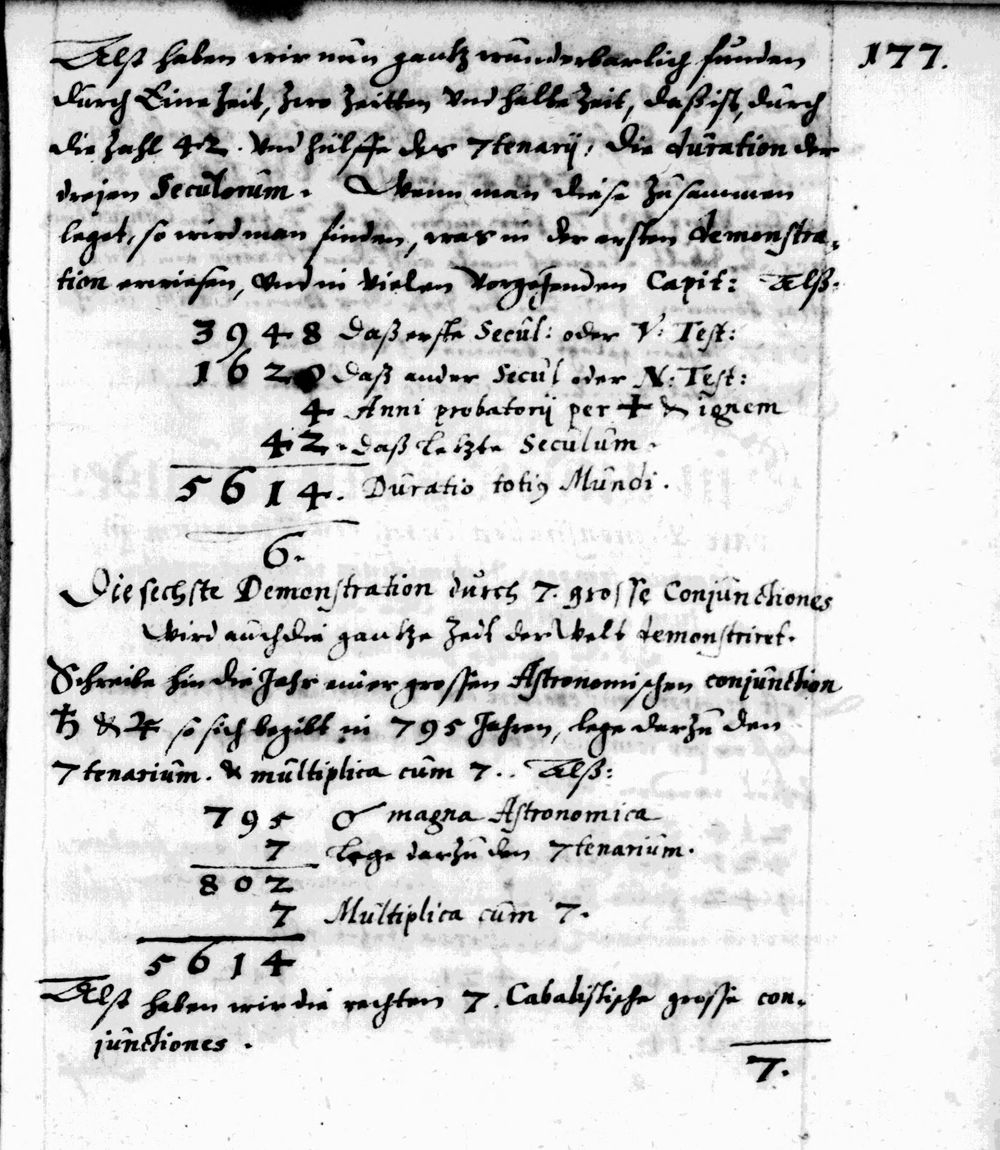 177.
Alß haben wir nun gantz wunderbarlich funden
durch Eine Zeit, zwo Zeitten Und halbe Zeit, daß ist, durch
die Zahl 42. Und hülffe des 7tenarij, die duration der
dreyen Seculorum. Wenn man diese zusammen
leget, so wird man finden, was in der ersten demonstra-
tion erwiesen, Und in Vielen Vorgehenden Capit: Alß:
3948 Daß erste Secul: oder V: Test:
1620 Daß ander Secul oder N: Test:
4 Anni probatorij per + & ignem
42. daß letzte Seculum.
5614. Duratio totiꝰ Mundi.
6.
Die sechste Demonstration durch 7. grosse Conjunctiones
Wird auch die gantze Zeit der Welt demonstriret.
Schreibe hin die Jahr einer grossen Astronomischen conjunction
♄ & ♃ so sich begibt in 795 Jahren, lege darzu den
7tenarium. & multiplica cum 7.. Alß:
795 ☌ magna Astronomica
7 Lege darzu den 7tenarium.
802
7 Multiplica cum 7.
5614
Alß haben wir die rechten 7. Cabalistische grosse con-
junctiones.
7.